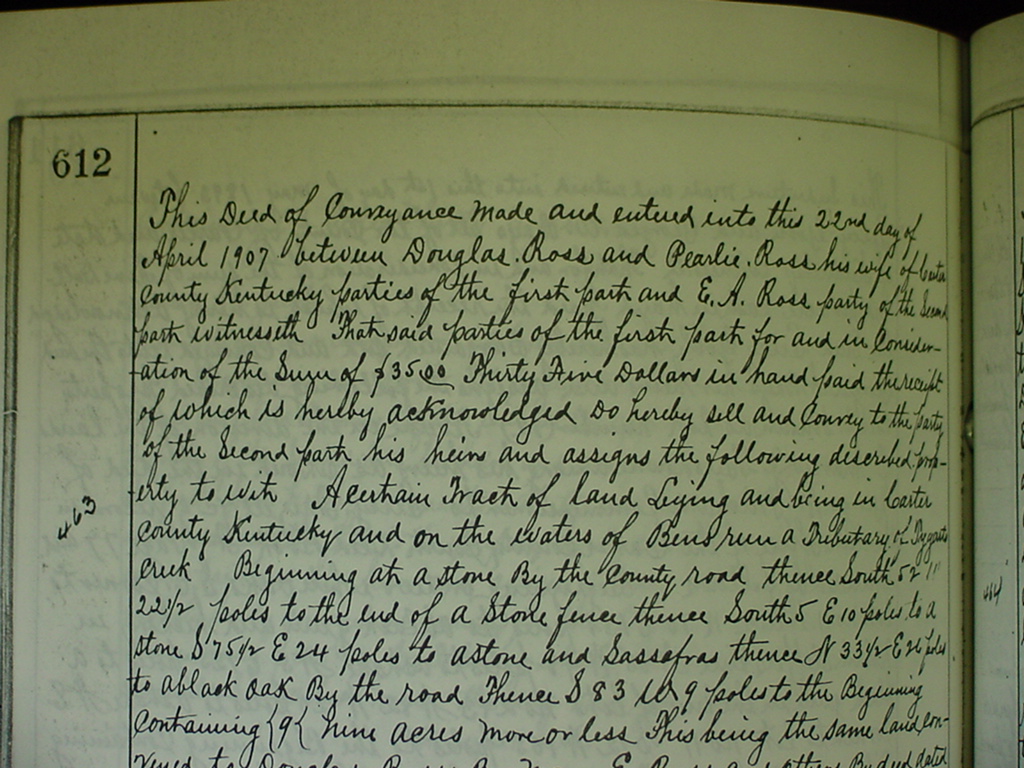 612
This Deed of Conveyance Made and entered into this 22nd day of
April 1907 between Douglas. Ross and Pearlie. Ross his wife of Carter
County Kentucky parties of the first part and E. A. Ross party of the Second
part witnesseth That said parties of the first part for and in Consider-
ation of the Sum of $35.00 Thirty Five Dollars in hand paid the receipt
of which is hereby acknowledged Do hereby sell and Convey to the party
of the Second part his heirs and assigns the following discribed prop-
erty to with A certain Tract of land Lying and being in Carter
463
County Kentucky and on the waters of Bens run a Tributary of
Creek Beginning at a stone By the County road thence South 52
464
22 1/2 poles to the end of a Stone fence thence South 5 E 10 poles to a
stone S 75 1/2 E 24 poles to a stone and Sassafras thence N 33 1/2 E 26 poles
to a black oak By the road Thence S 83 W 9 poles to the Beginning
Containing {9{ nine acres more or less This being the same land con-
veyed to Douglas Ross By E. Ross and others By deed dated